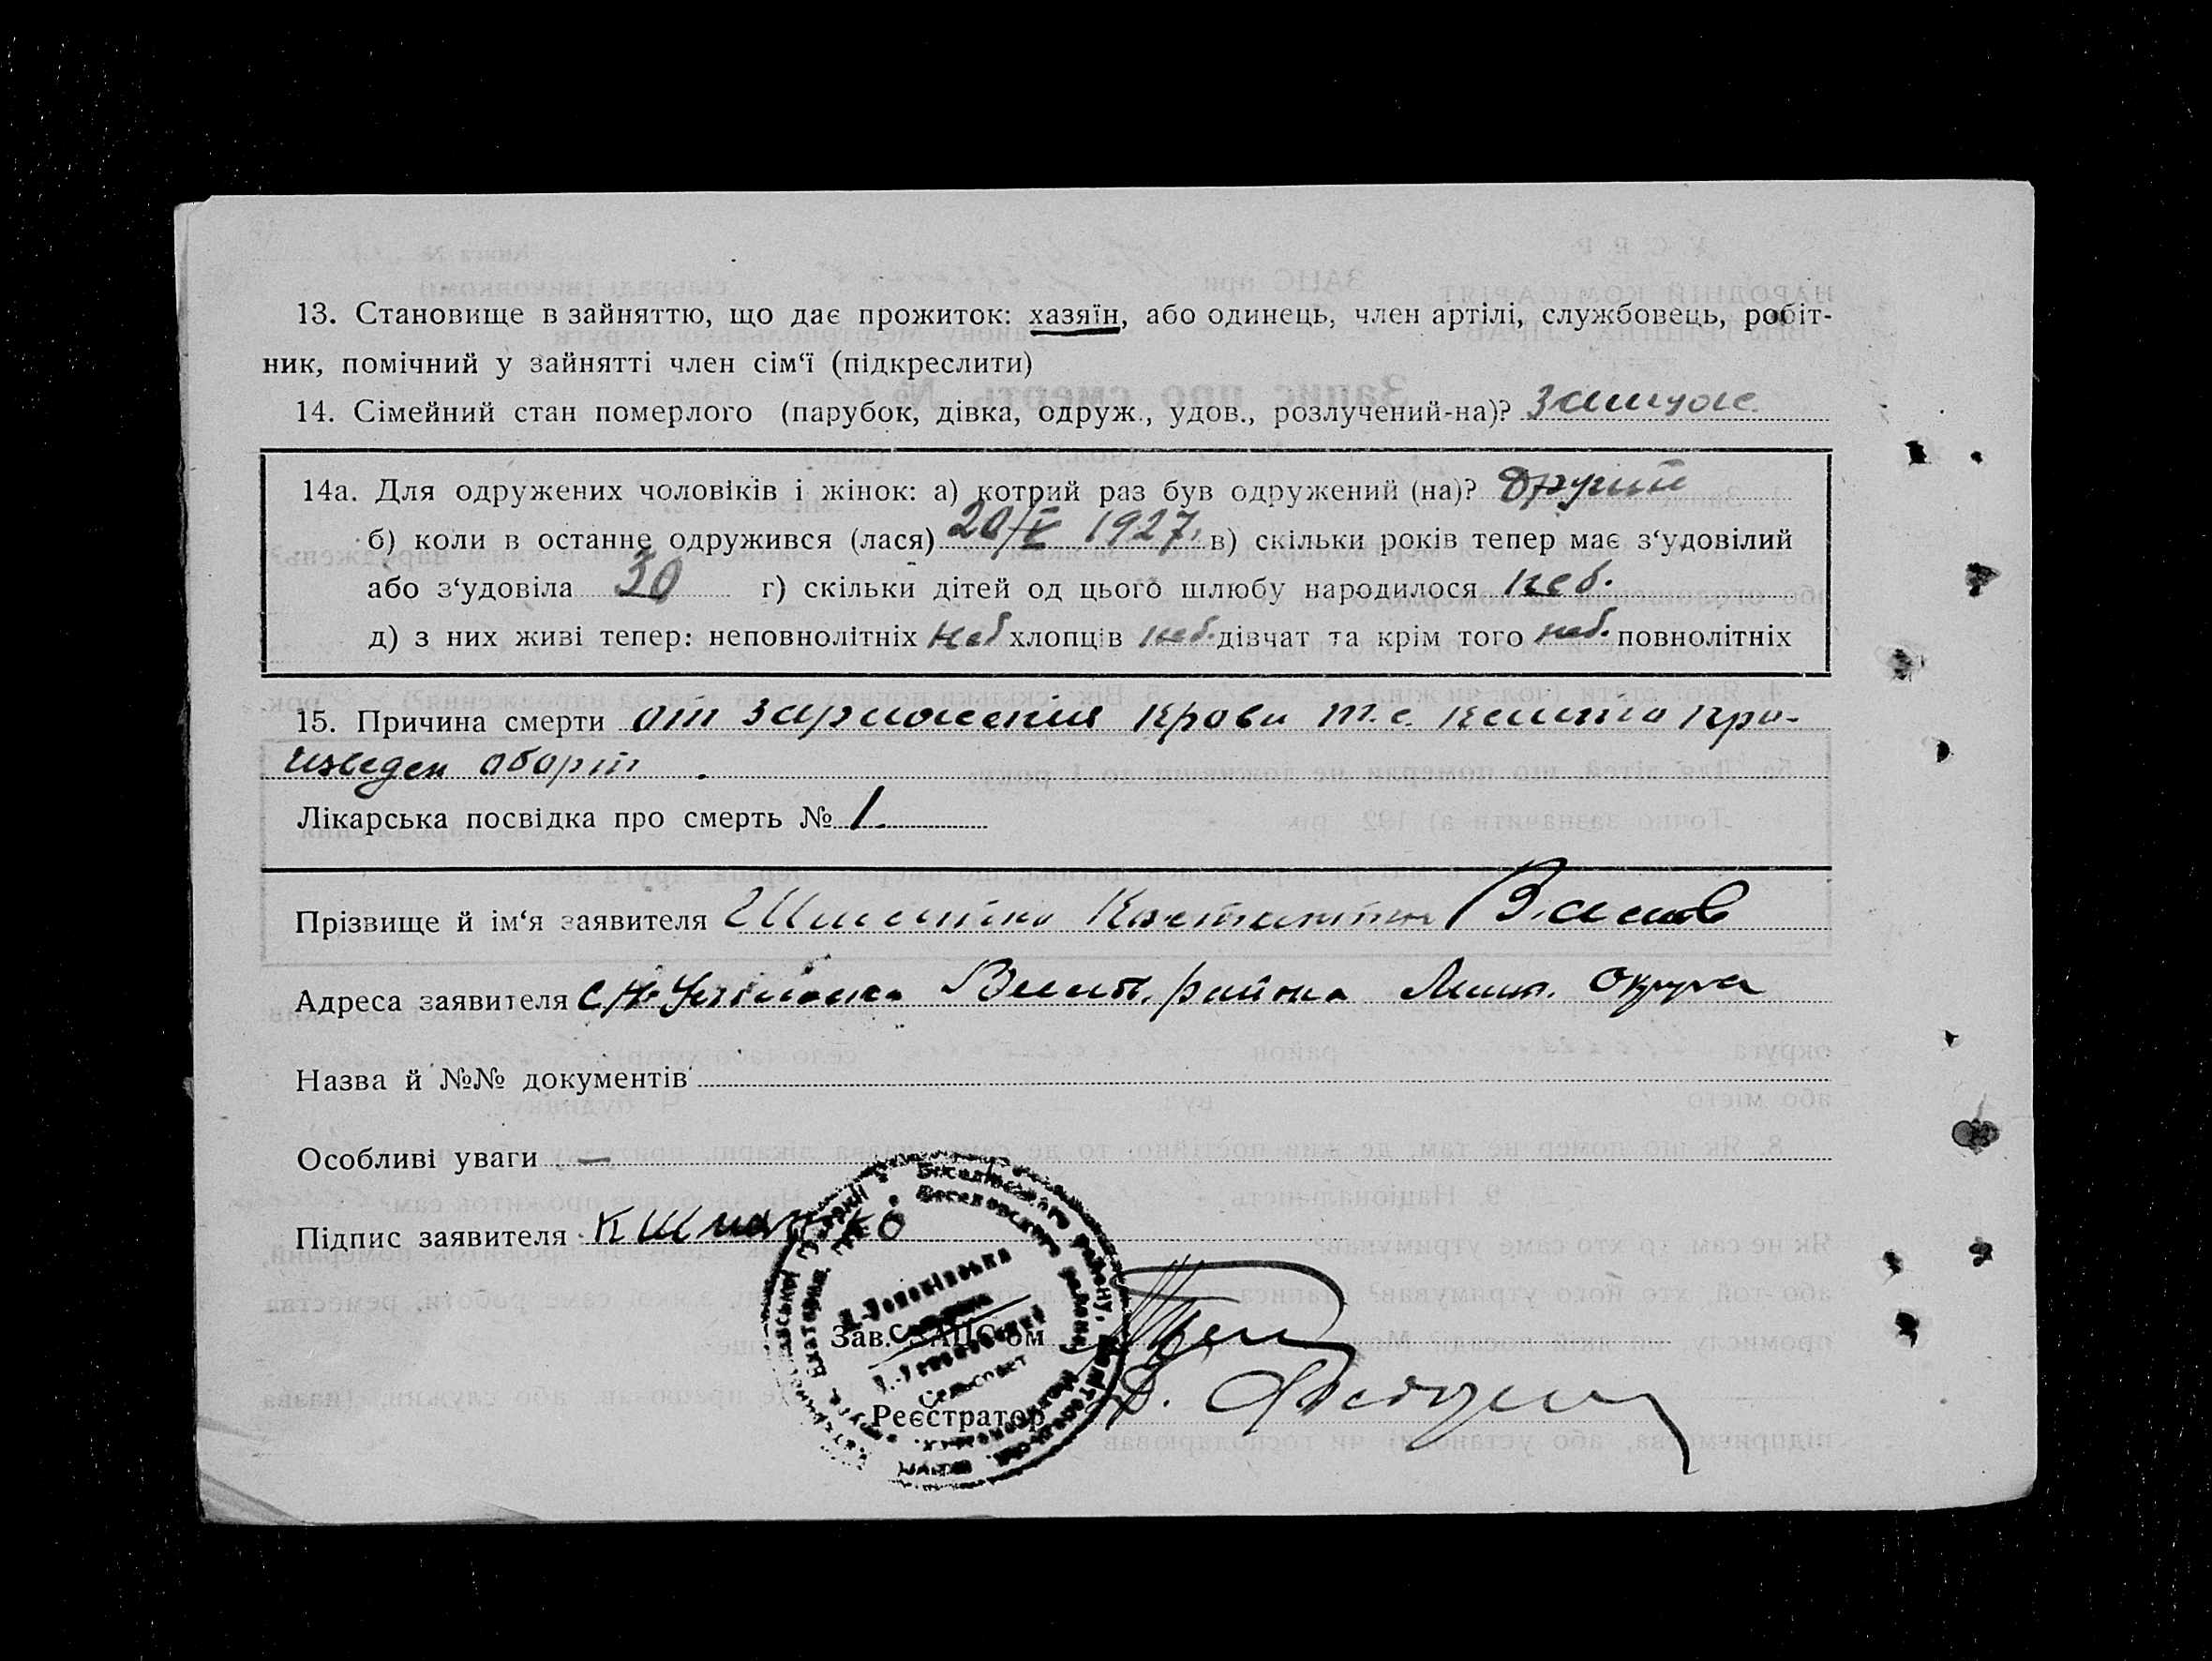 13. Становище в зайняттю, що дає прожиток: хазяїн, або одинець, член артілі, службовець, робіт-
ник, помічний у зайнятті член сім‘ї (підкреслити)
14. Сімейний стан померлого (парубок, дівка, одруж., удов., розлучений-на)? замуж.
14а. Для одружених чоловіків і жінок: а) котрий раз був одружений (на)? другий
б) коли в останнє одружився (лася) 20/V 1927. в) скільки років тепер має з‘удовілий
або з‘удовіла 30 г) скільки дітей од цього шлюбу народилося неб.
д) з них живі тепер: неповнолітніх неб хлопців неб. дівчат та крім того неб. повнолітніх
15. Причина смерти от заражения крови т.е. про-
изведен аборт.
Лікарська посвідка про смерть № 1.
Прізвище й ім‘я заявителя Константин
Адреса заявителя района округа
Назва й №№ документів
Особливі уваги —
Підпис заявителя
Зав. ЗАПС‘ом
Реєстратор